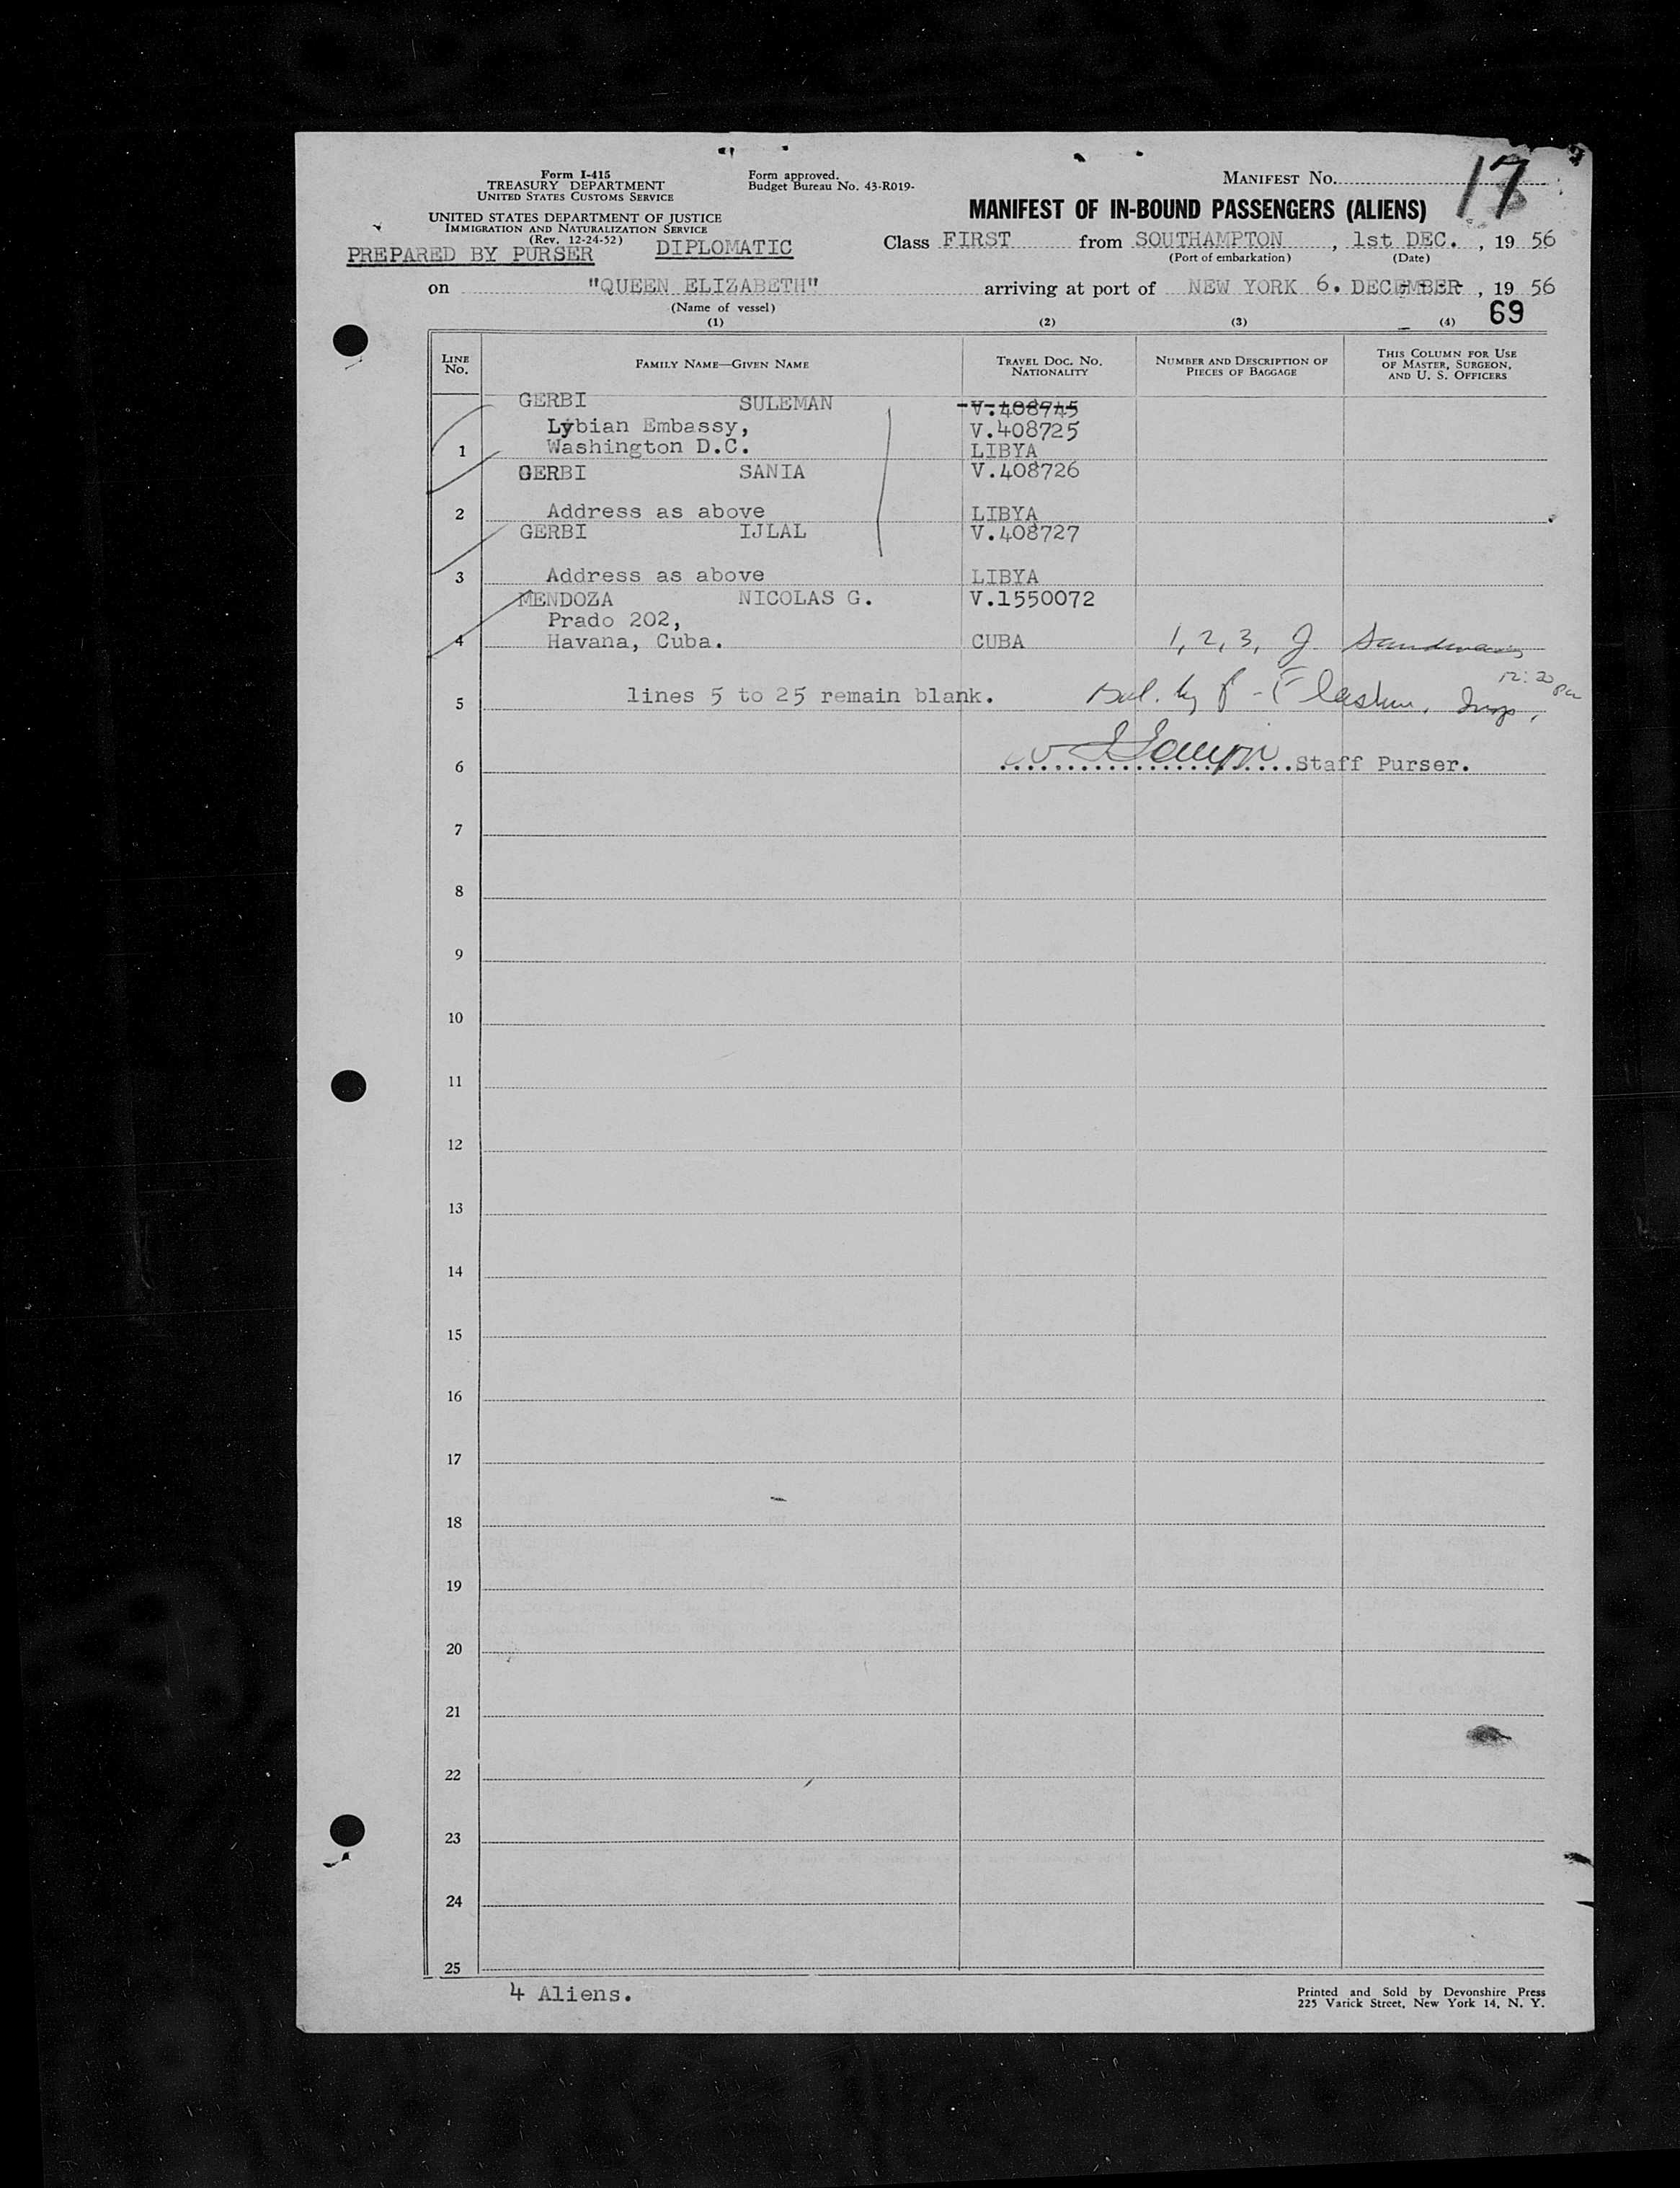 Form I-415
TREASURY DEPARTMENT
UNITED STATES CUSTOMS SERVICE
Form approved.
Budget Bureau No. 43-R019-
MANIFEST NO. 17
UNITED STATES DEPARTMENT OF JUSTICE
IMMIGRATION AND NATURALIZATION SERVICE
(Rev. 12-24-52)
MANIFEST OF IN-BOUND PASSENGERS (ALIENS)
PREPARED BY PURSER DIPLOMATIC
Class FIRST from SOUTHAMPTON, 1st DEC., 19 56
(Port of embarkation) (Date)
on "QUEEN ELIZABETH" arriving at port of NEW YORK 6. DECEMBER, 19 56
(Name of vessel)
69
(1) (2) (3) (4)
LINE NO. FAMILY NAME—GIVEN NAME TRAVEL DOC. NO. NATIONALITY NUMBER AND DESCRIPTION OF PIECES OF BAGGAGE THIS COLUMN FOR USE OF MASTER, SURGEON, AND U. S. OFFICERS
GERBI SULEMAN V.408745
Lybian Embassy, V.408725
1 Washington D.C. LIBYA
GERBI SANIA V.408726
2 Address as above LIBYA
GERBI IJLAL V.408727
3 Address as above LIBYA
MENDOZA NICOLAS G. V.1550072
Prado 202,
4 Havana, Cuba. CUBA 1, 2, 3, J
12:20 pm
5 lines 5 to 25 remain blank. by Insp.
6 Staff Purser.
7
8
9
10
11
12
13
14
15
16
17
18
19
20
21
22
23
24
25
4 Aliens.
Printed and Sold by Devonshire Press
225 Varick Street, New York 14, N. Y.